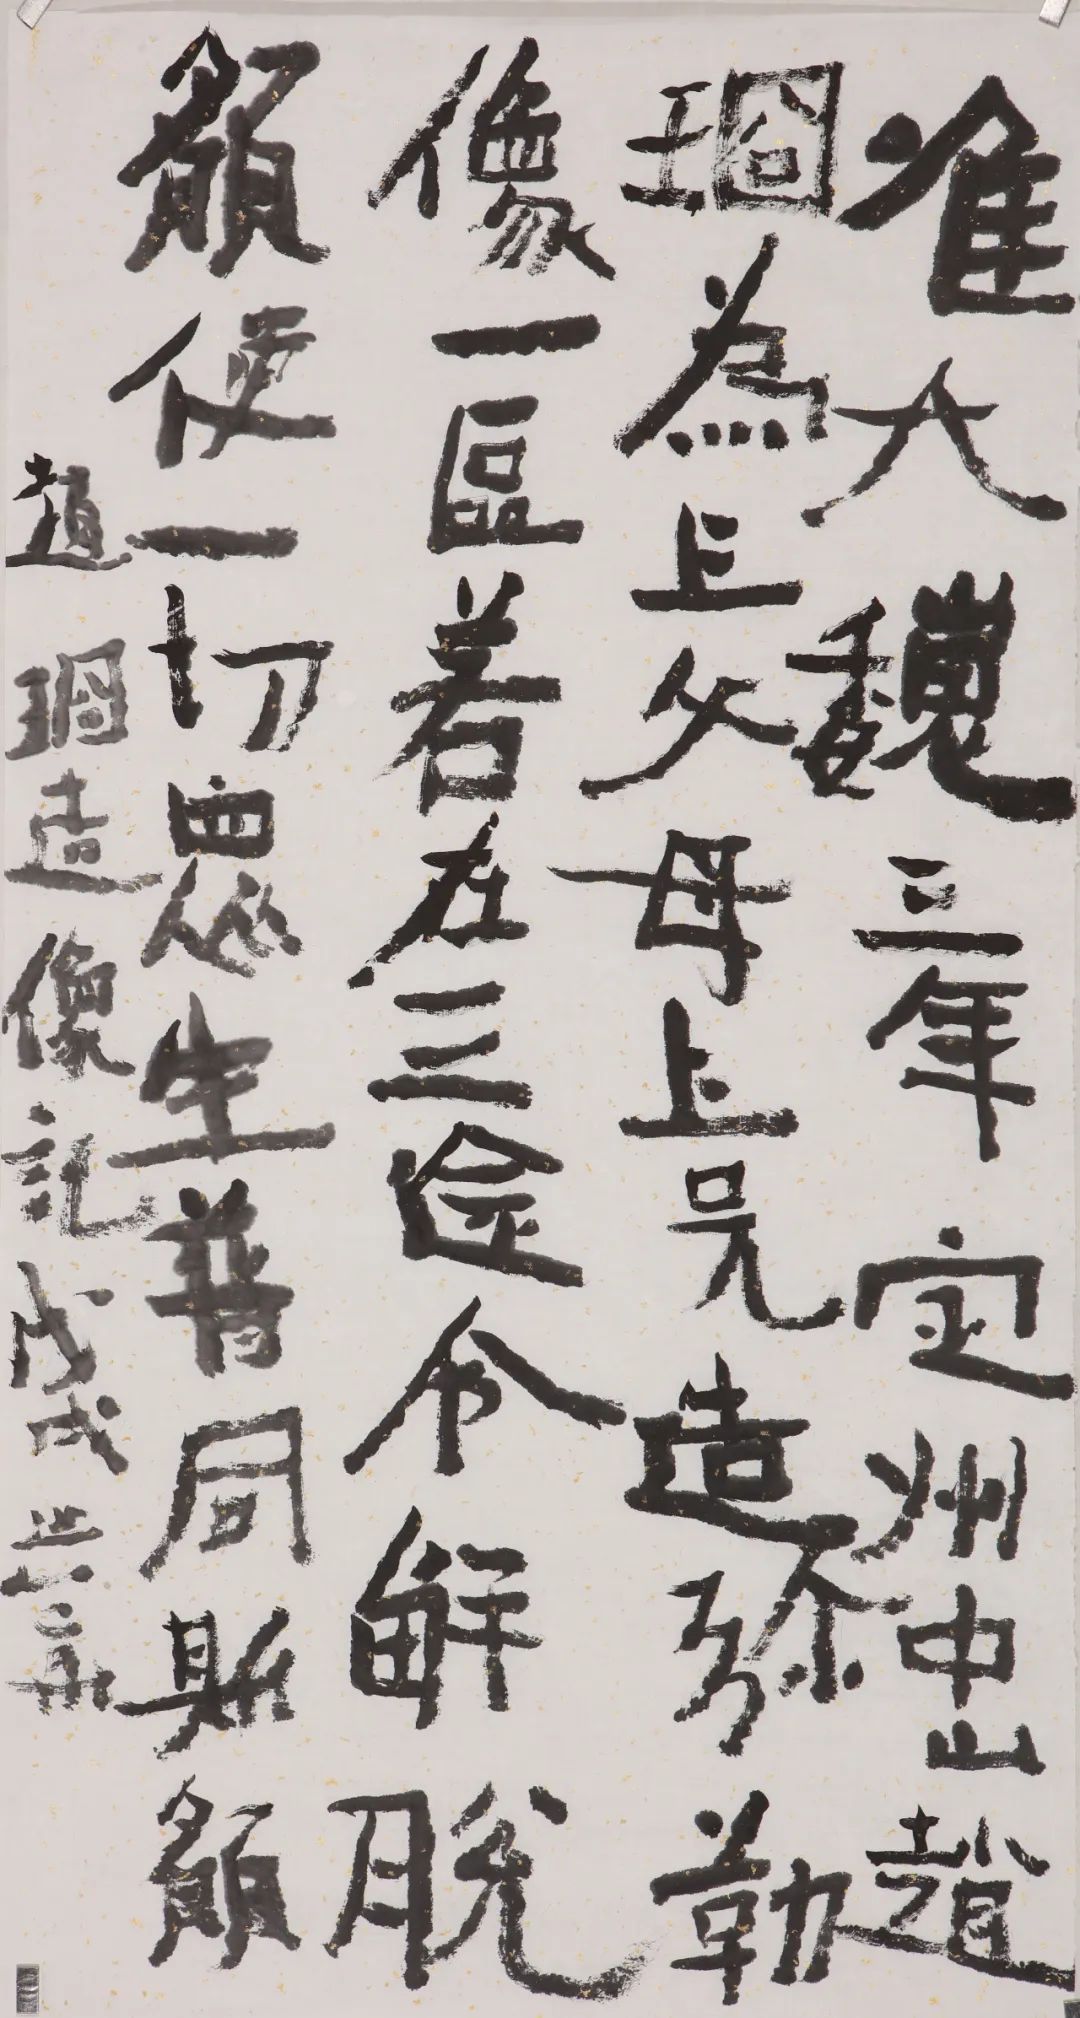 唯大魏三年定州中山趙
琱為上父母上兄造弥勒
像一區若在三途令解脱
願使一切眾生普同斯願
趙琱造像記戊戌